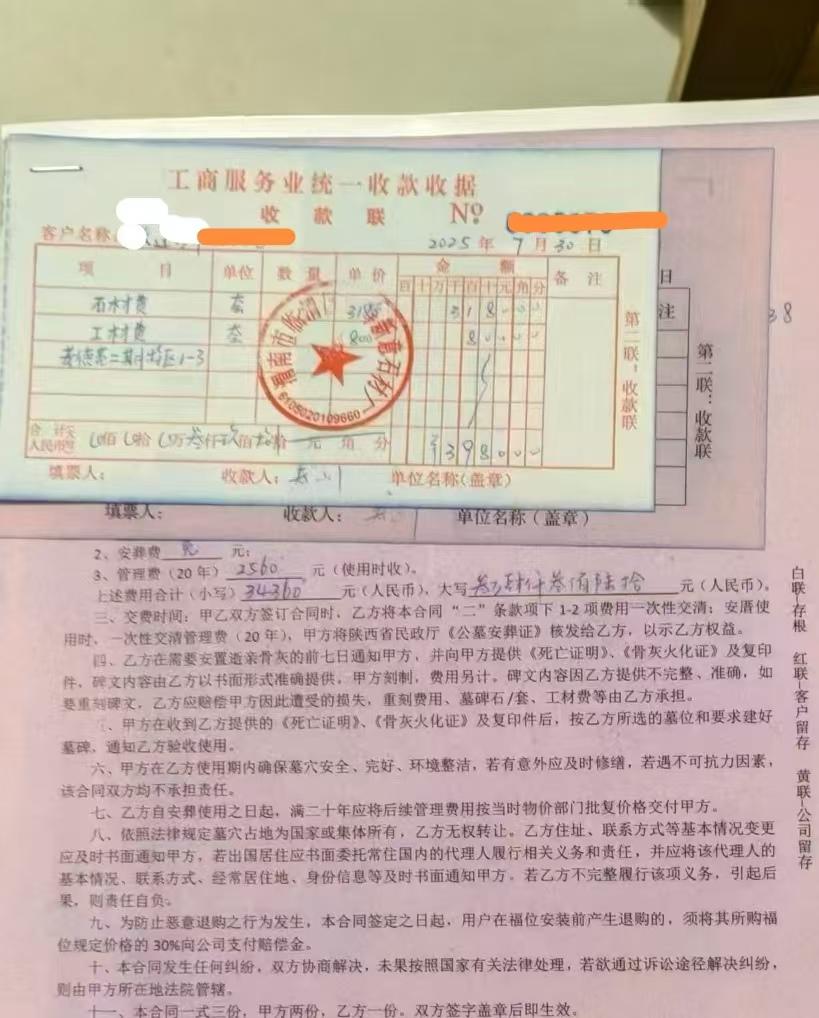 工商服务业统一收款收据
收款联 №
客户名称：
2025年7月30日
项目 单位 数量 单价 金额 备注
百十万千百十元角分
石材费 套 3180 318000
工材费 套 800 80000
二期 区1-3
合计 人民币 佰 拾 万叁仟玖佰 拾 元 角 分 ¥398000
填票人： 收款人： 单位名称(盖章)
第二联：收款联
渭南市临渭区 石材厂
6105020109660
日
注
38
第二联：收款联
填票人： 收款人： 单位名称（盖章）
2、安葬费 免 元；
3、管理费（20年）2560 元（使用时收）。
上述费用合计（小写）34360 元（人民币），大写 叁万肆仟叁佰陆拾 元（人民币）。
三、交费时间：甲乙双方签订合同时，乙方将本合同“二”条款项下1-2项费用一次性交清；安厝使
用时、一次性交清管理费（20年），甲方将陕西省民政厅《公墓安葬证》核发给乙方，以示乙方权益。
四、乙方在需要安置逝亲骨灰的前七日通知甲方，并向甲方提供《死亡证明》、《骨灰火化证》及复印
件，碑文内容由乙方以书面形式准确提供，甲方刻制，费用另计。碑文内容因乙方提供不完整、准确，如
要重刻碑文，乙方应赔偿甲方因此遭受的损失，重刻费用、墓碑石/套、工材费等由乙方承担。
、甲方在收到乙方提供的《死亡证明》、《骨灰火化证》及复印件后，按乙方所选的墓位和要求建好
墓碑，通知乙方验收使用。
六、甲方在乙方使用期内确保墓穴安全、完好、环境整洁，若有意外应及时修缮，若遇不可抗力因素，
该合同双方均不承担责任。
七、乙方自安葬使用之日起，满二十年应将后续管理费用按当时物价部门批复价格交付甲方。
八、依照法律规定墓穴占地为国家或集体所有，乙方无权转让。乙方住址、联系方式等基本情况变更
应及时书面通知甲方，若出国居住应书面委托常住国内的代理人履行相关义务和责任，并应将该代理人的
基本情况、联系方式、经常居住地、身份信息等及时书面通知甲方。若乙方不完整履行该项义务，引起后
果，则责任自负。
九、为防止恶意退购之行为发生，本合同签定之日起，用户在福位安装前产生退购的，须将其所购福
位规定价格的30%向公司支付赔偿金。
十、本合同发生任何纠纷，双方协商解决，未果按照国家有关法律处理，若欲通过诉讼途径解决纠纷，
则由甲方所在地法院管辖。
十一、本合同一式三份，甲方两份，乙方一份。双方签字盖章后即生效。
白联-存根 红联-客户留存 黄联-公司留存